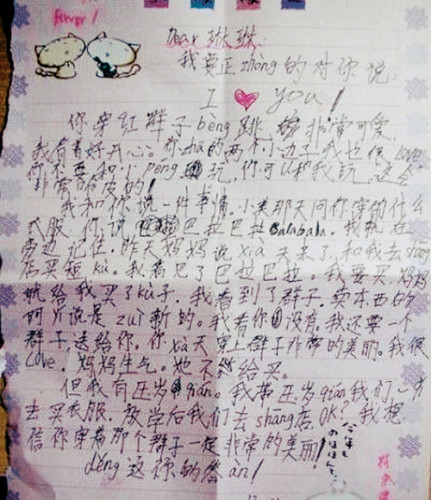 Dear 琳琳:
我要正zhong的对你说:
I ❤ you!
你穿红群子bèng跳, 非常可爱,
我看着好开心。你zha的两个小边子我也很love
你不要和小péng玩,你可以和我玩,
非常
我和你说一件事情。小美那天问你穿的什么
衣服,你说 巴拉巴拉balabala。我就在
旁边记住,昨天妈妈说xià天来了,和我去shang
店买短kù。我看见了巴拉巴拉。我要买,妈妈
就给我买了kù子,我看到了群子,卖东西的
阿姨说是zuì新的。我看你没有,我还要一个
群子,送给你,你xià天穿上群子非常的美丽。我很
love,妈妈生气。她不给买。
但我有压岁qián。我带压岁qián我们一齐
去买衣服,放学后我们去shang店,OK?我想
信你穿着那个群子一定非常的美丽!
děng这你的答àn!